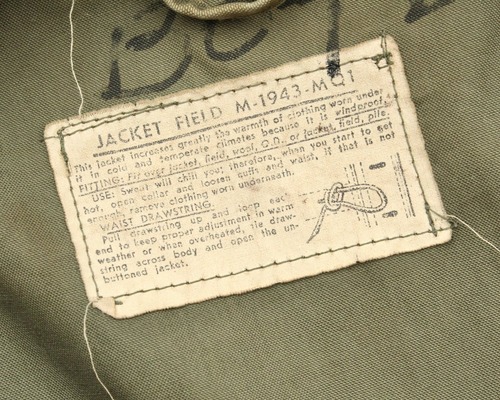 JACKET FIELD M-1943-MQ1
This jacket increases greatly the warmth of clothing worn under
it in cold and temperate climates because it is windproof.
FITTING: Fit over jacket, field, wool, O.D. or jacket, field, pile.
USE: Sweat will chill you; therefore, when you start to get
hot, open collar and loosen cuffs and waist, if that is not
enough, remove clothing worn underneath.
WAIST DRAWSTRING
Pull drawstring up and loop each
end to keep proper adjustment in warm
weather or when overheated, tie draw-
string across body and open the un-
buttoned jacket.